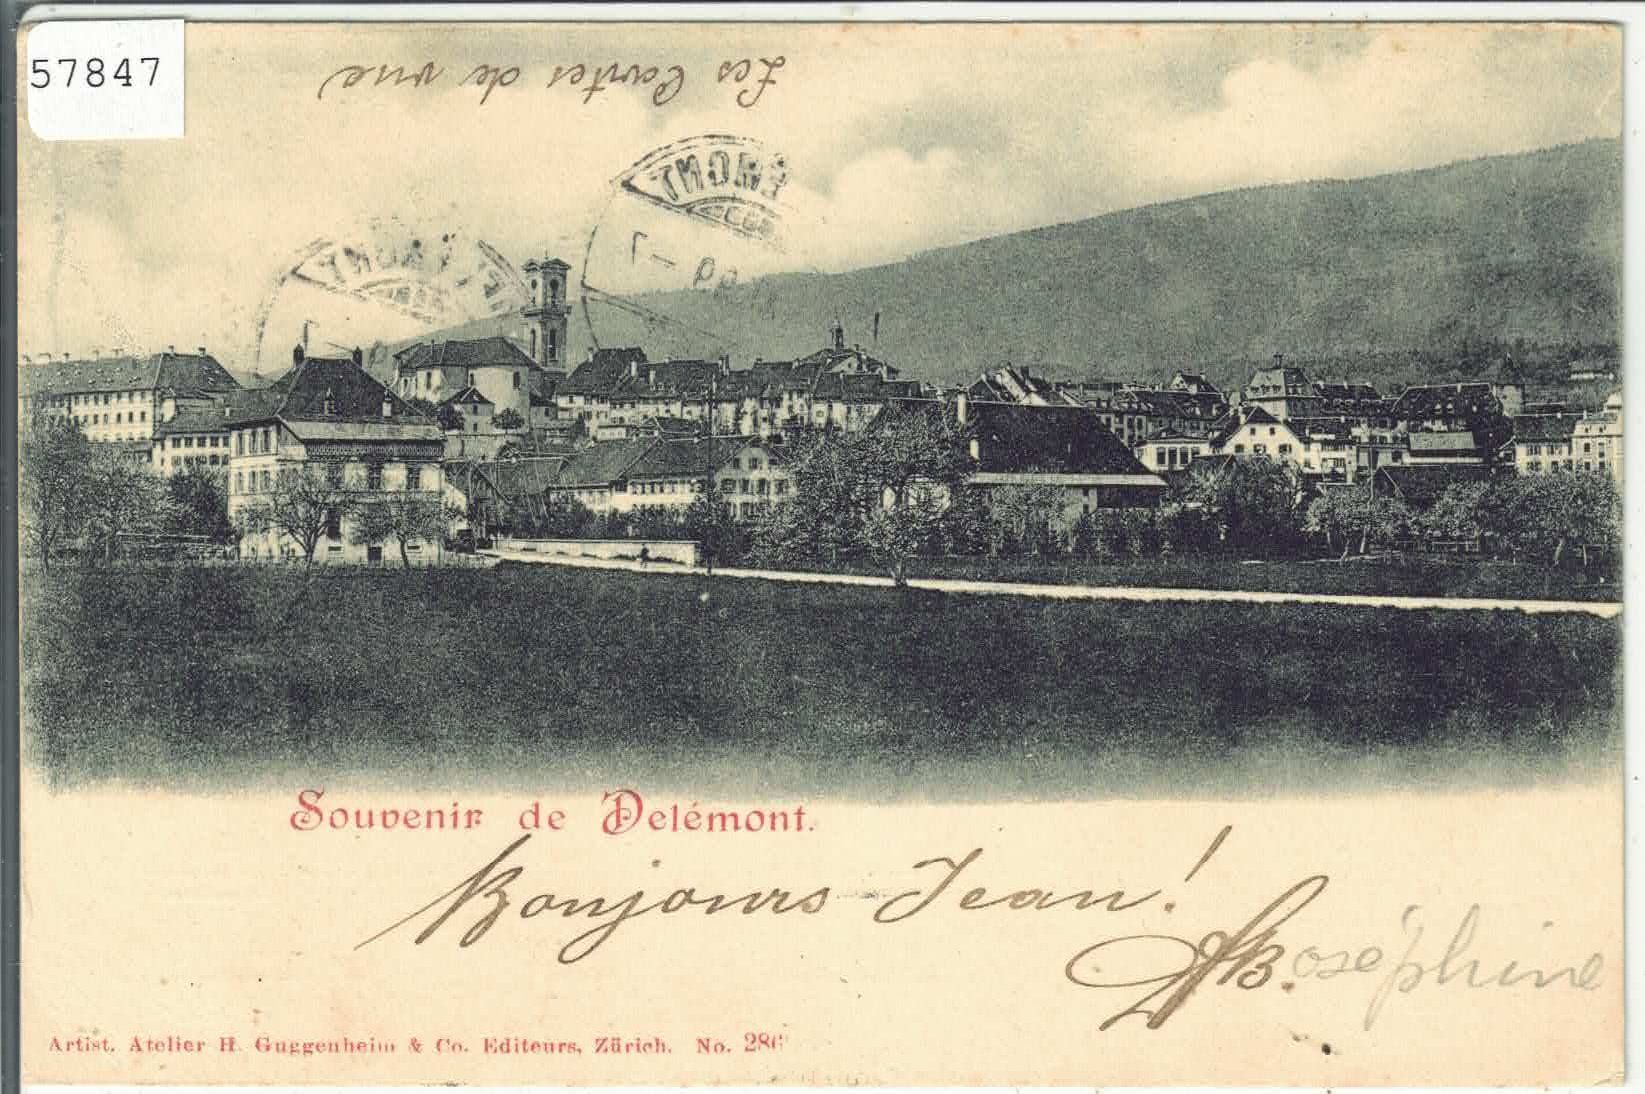 57847
Les Cartes de vue
Souvenir de Delémont.
Bonjours Jean!
JB. oséphine
Artist. Atelier H. Guggenheim & Co. Editeurs, Zürich. No.